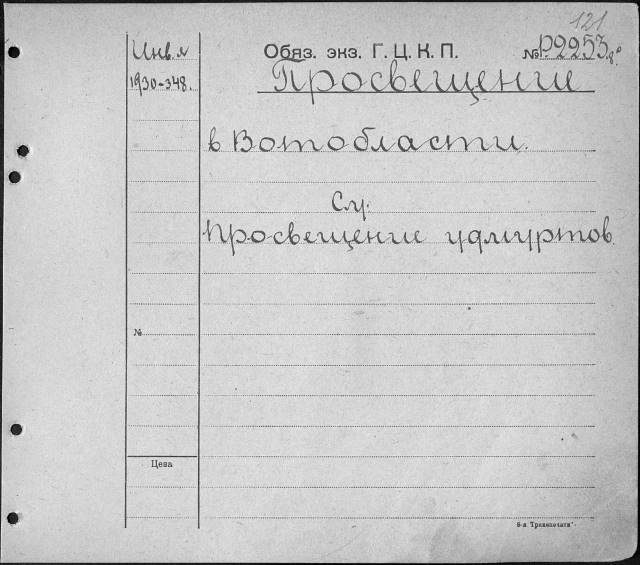 121
Инв. л
Обяз. экз. Г. Ц. К. П.
№ Р2253
1930-348.
Просвещение
в Вотобласти.
См.
Просвещение удмуртов.
№
Цена
6-я „Транспечати“.